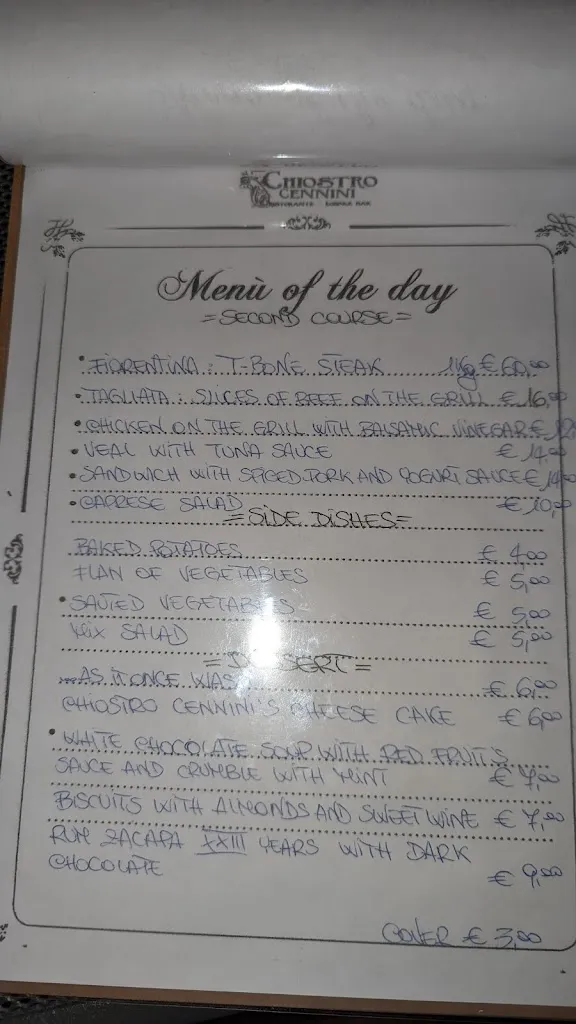 CHIOSTRO
CENNINI
RISTORANTE
Menù of the day
=SECOND COURSE=
• FIORENTINA: T-BONE STEAK 1Kg € 60,00
• TAGLIATA: SLICES OF BEEF ON THE GRILL € 16,00
• CHICKEN ON THE GRILL WITH BALSAMIC VINEGAR €
• VEAL WITH TUNA SAUCE € 14,00
• SANDWICH WITH SPICED PORK AND YOGURT SAUCE € 14,00
• CAPRESE SALAD € 10,00
=SIDE DISHES=
BAKED POTATOES € 4,00
FLAN OF VEGETABLES € 5,00
• SAUTED VEGETABLES € 5,00
MIX SALAD € 5,00
=DESSERT=
...AS IT ONCE WAS € 6,00
CHIOSTRO CENNINI'S CHEESE CAKE € 6,00
• WHITE CHOCOLATE SOUP WITH RED FRUITS
SAUCE AND CRUMBLE WITH MINT € 7,00
BISCUITS WITH ALMONDS AND SWEET WINE € 7,00
RUM ZACAPA XXIII YEARS WITH DARK
CHOCOLATE € 9,00
COVER € 3,00